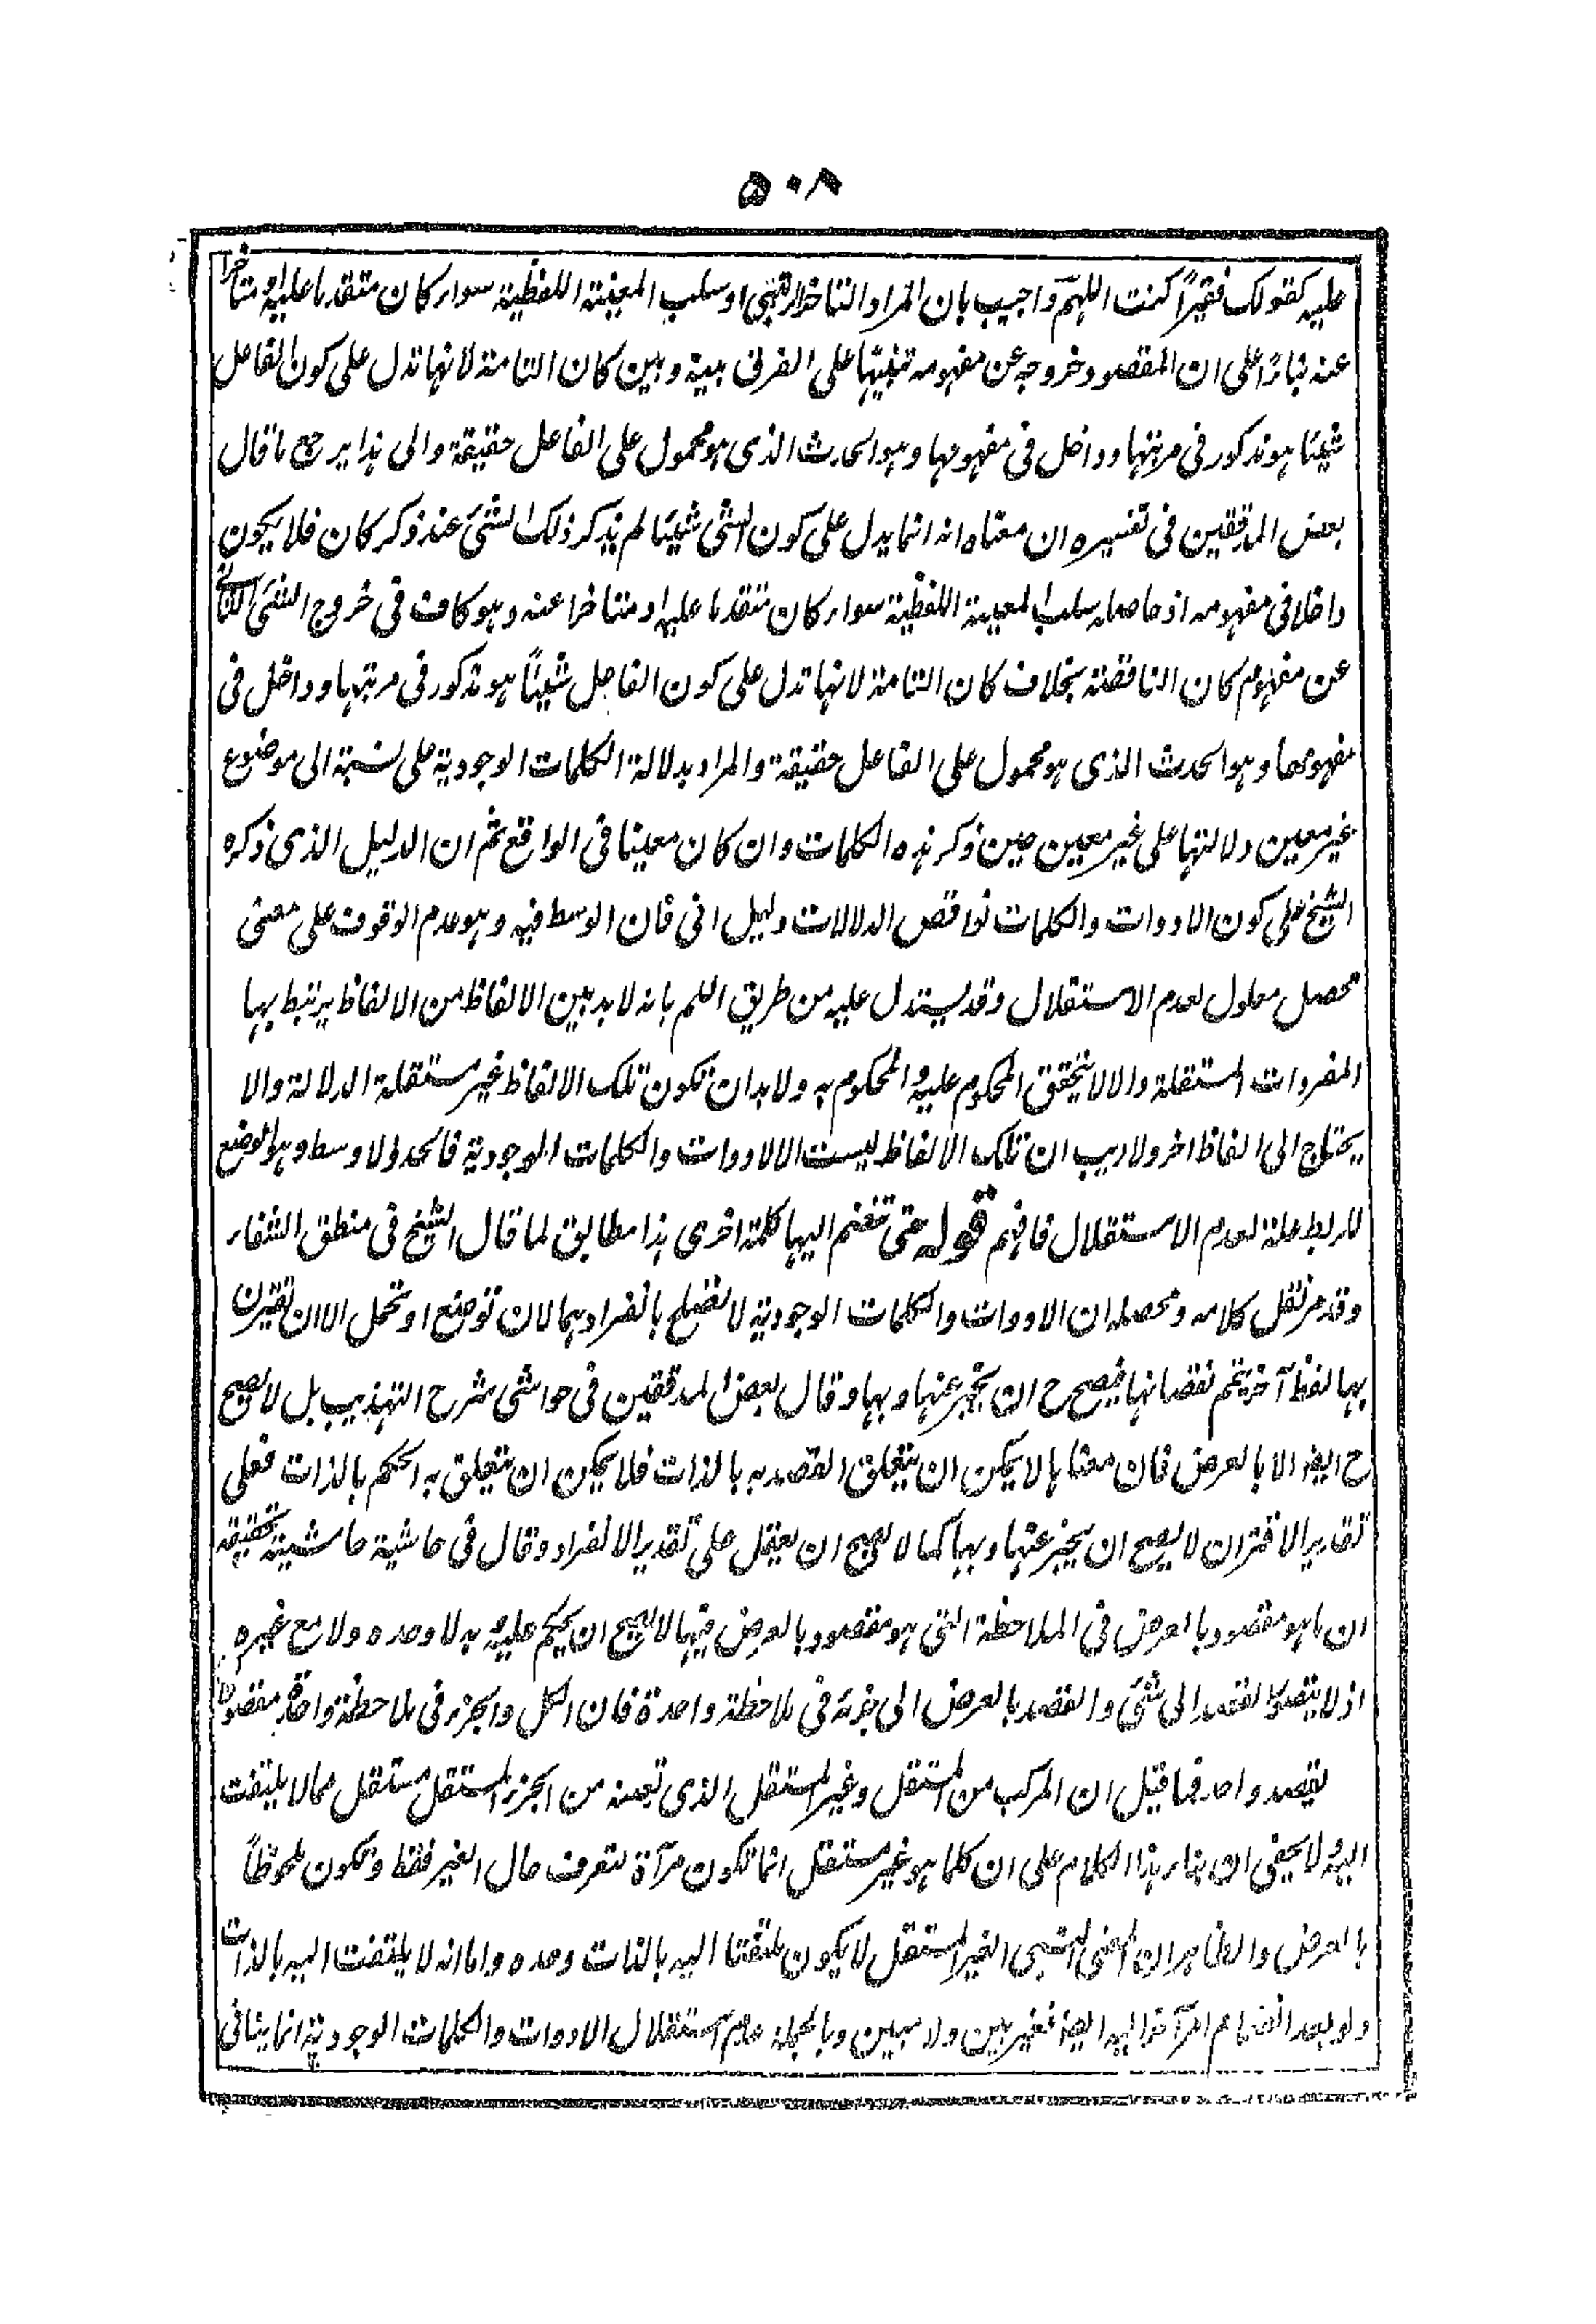 ٥٠٨
عليه كقولك فقيراً كنت اللهم واجيب بان المراد التاخر الرتبى او سلب المعية اللفظية سواء كان متقدما عليه او متاخرا
عنه بناءً على ان المقصود خروجه عن مفهومه تنبيها على الفرق بينه وبين كان التامة لانها تدل على كون الفاعل
شيئا هو مذكور فى مرتبتها وداخل فى مفهومها وهو الحدث الذى هو محمول على الفاعل حقيقة والى هذا يرجع ما قال
بعض المدققين فى تفسيره ان معناه انه انما يدل على كون الشئ شيئا لم يذكر ذلك الشئ عند ذكر كان فلا يكون
داخلا فى مفهومه اذ حاصله سلب المعية اللفظية سواء كان متقدما عليه او متاخرا عنه وهو كاف فى خروج الشئ الثانى
عن مفهوم كان الناقصة بخلاف كان التامة لانها تدل على كون الفاعل شيئاً هو مذكور فى مرتبتها وداخل فى
مفهومها وهو الحدث الذى هو محمول على الفاعل حقيقة والمراد بدلالة الكلمات الوجودية على نسبة الى موضوع
غير معين دلالتها على غير معين حين ذكر هذه الكلمات وان كان معينا فى الواقع ثم ان الدليل الذى ذكره
الشيخ على كون الادوات والكلمات نواقص الدلالات دليل انى فان الوسط فيه وهو عدم الوقوف على معنى
محصل معلول لعدم الاستقلال وقد يستدل عليه من طريق اللم بانه لا بد بين الالفاظ من الالفاظ يرتبط بها
المفردات المستقلة والا لا يتحقق المحكوم عليه والمحكوم به ولا بد ان تكون تلك الالفاظ غير مستقلة الدلالة والا
يحتاج الى الفاظ اخر ولا ريب ان تلك الالفاظ ليست الا الادوات والكلمات الوجودية فالحد الاوسط وهو الوضع
للربط علة لعدم الاستقلال فافهم قوله حتى تنضم اليها كلمة اخرى هذا مطابق لما قال الشيخ فى منطق الشفاء
وقد مر نقل كلامه ومحصله ان الادوات والكلمات الوجودية لا تصلح بانفرادهما لان توضع او تحمل الا ان تقترن
بها لفظ آخر يتم نقصانها فيصح ح ان يخبر عنها وبها وقال بعض المدققين فى حواشى شرح التهذيب بل لا يصح
ح ايضا الا بالعرض فان معناها لا يمكن ان يتعلق القصد به بالذات فلا يمكن ان يتعلق به الحكم بالذات فعلى
تقدير الاقتران لا يصح ان يخبر عنها وبها كما لا يصح ان يعقل على تقدير الانفراد وقال فى حاشية حاشيته تحقيقه
ان ما هو مقصود بالعرض فى الملاحظة التى هو مقصود بالعرض فيها لا يصح ان يحكم عليه وبه لا وحده ولا مع غيره
اذ لا يتصور القصد الى شئ والقصد بالعرض الى جزئه فى ملاحظة واحدة فان الكل والجزء فى ملاحظة واحدة مقصودان
بقصد واحد فما قيل ان المركب من المستقل وغير المستقل الذى تعينه من الجزء المستقل مستقل مما لا يلتفت
اليه ولا يخفى ان بناء هذا الكلام على ان كلما هو غير مستقل انما تكون مرآة لتعرف حال الغير فقط وتكون ملحوظاً
بالعرض والظاهر ان المعنى النسبى الغير المستقل لا يكون ملتفتا اليه بالذات وحده واما انه لا يلتفت اليه بالذات
ولو بعد انضمام امر آخر اليه ايضا فغير بين ولا مبين وبالجملة عدم استقلال الادوات والكلمات الوجودية انما ينافى